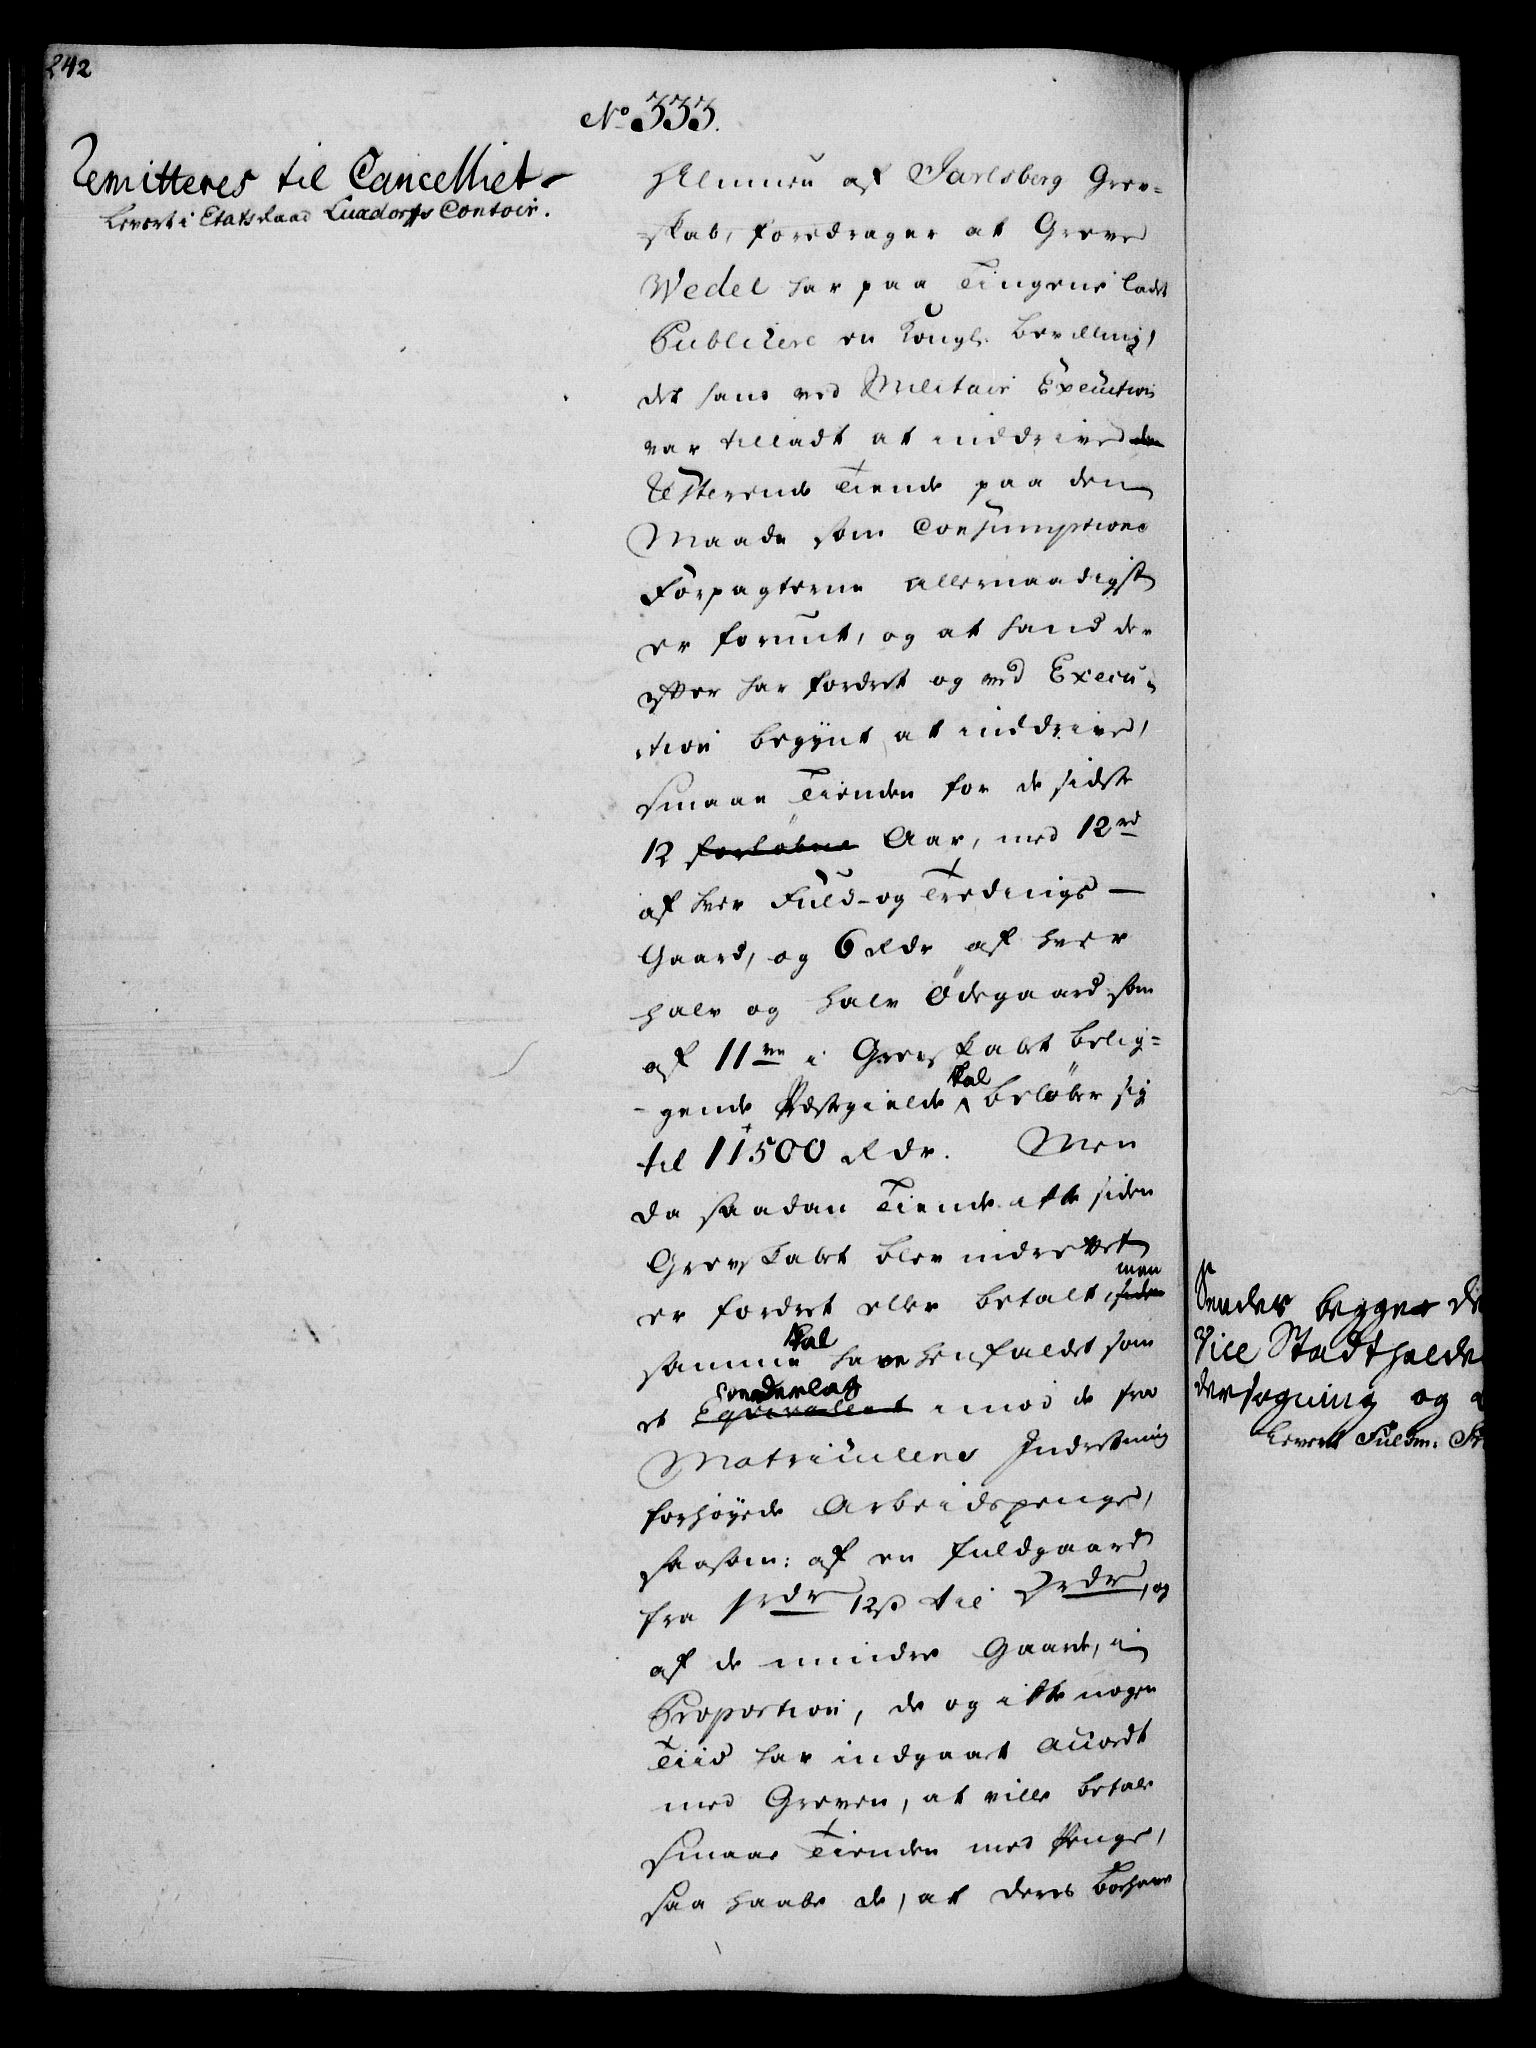 242
No 333.
Remitteres til Cancelliet
Levert i Etatsraad Luxdorffs Contoir.
Almuen af Jarlsberg Grev-
skab, foredrager at Greve
Wedel har paa Tingene ladet
Publicere en Kongl. Bevilling,
det hans ved Militair Execution
var tilladt at inddrive den
Resterende Tiende paa den
Maade som Consumptions
Forpagterne allernaadigst
er forunt, og at hand der
efter har fordret og ved Execu-
tion begynt at inddrive,
Smaae Tienden for de sidste
12 forløbne Aar, med 12 rd
af hver Fuld- og Tredings-
Gaard, og 6 Rdr af hver
halv og halv Ødegaard som
af 11ve i Grevskabet belig-
gende Præstegielde skal beløber sig
til 11500 Rdr. Men
da saadan Tiende ikke siden
Grevskabet blev indrettet
er fordret eller betalt, siden men
samme skal have henfaldet som
et Eqvivalent Vederlag imod de fra
Matriculens Indretning
forhøyede Arbeidspenge,
saasom: af en fuldgaard
fra 1rdr 12s til 2rdr, og
af de mindre Gaarde, i
Proportion, de og ikke nogen
Tiid har indgaaet accordt
med Greven, at ville betale
Smaae Tienden med Penge,
saa haabe de, at deres
Sendes begge
Vice Stadtholde
dersøgning og
Levert Fuldm.